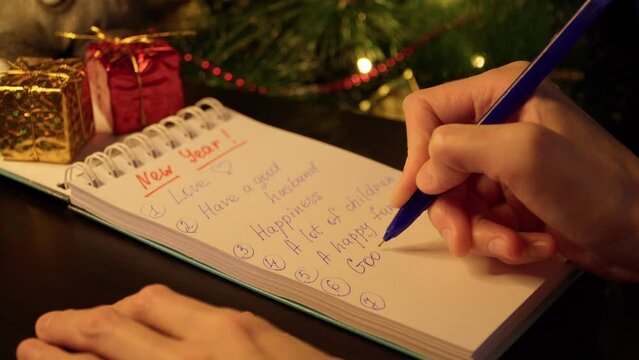 New Year!
① Love ♡
② Have a good husband
③ Happiness
④ A lot of children
⑤ A happy fa
⑥ Goo
⑦